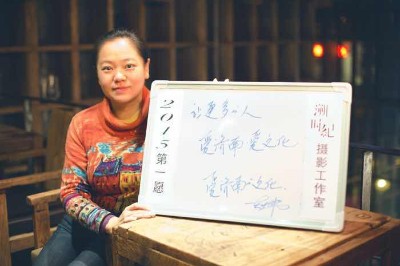 2015第一愿
让更多人
爱济南 爱文化
爱济南文化
摄影工作室